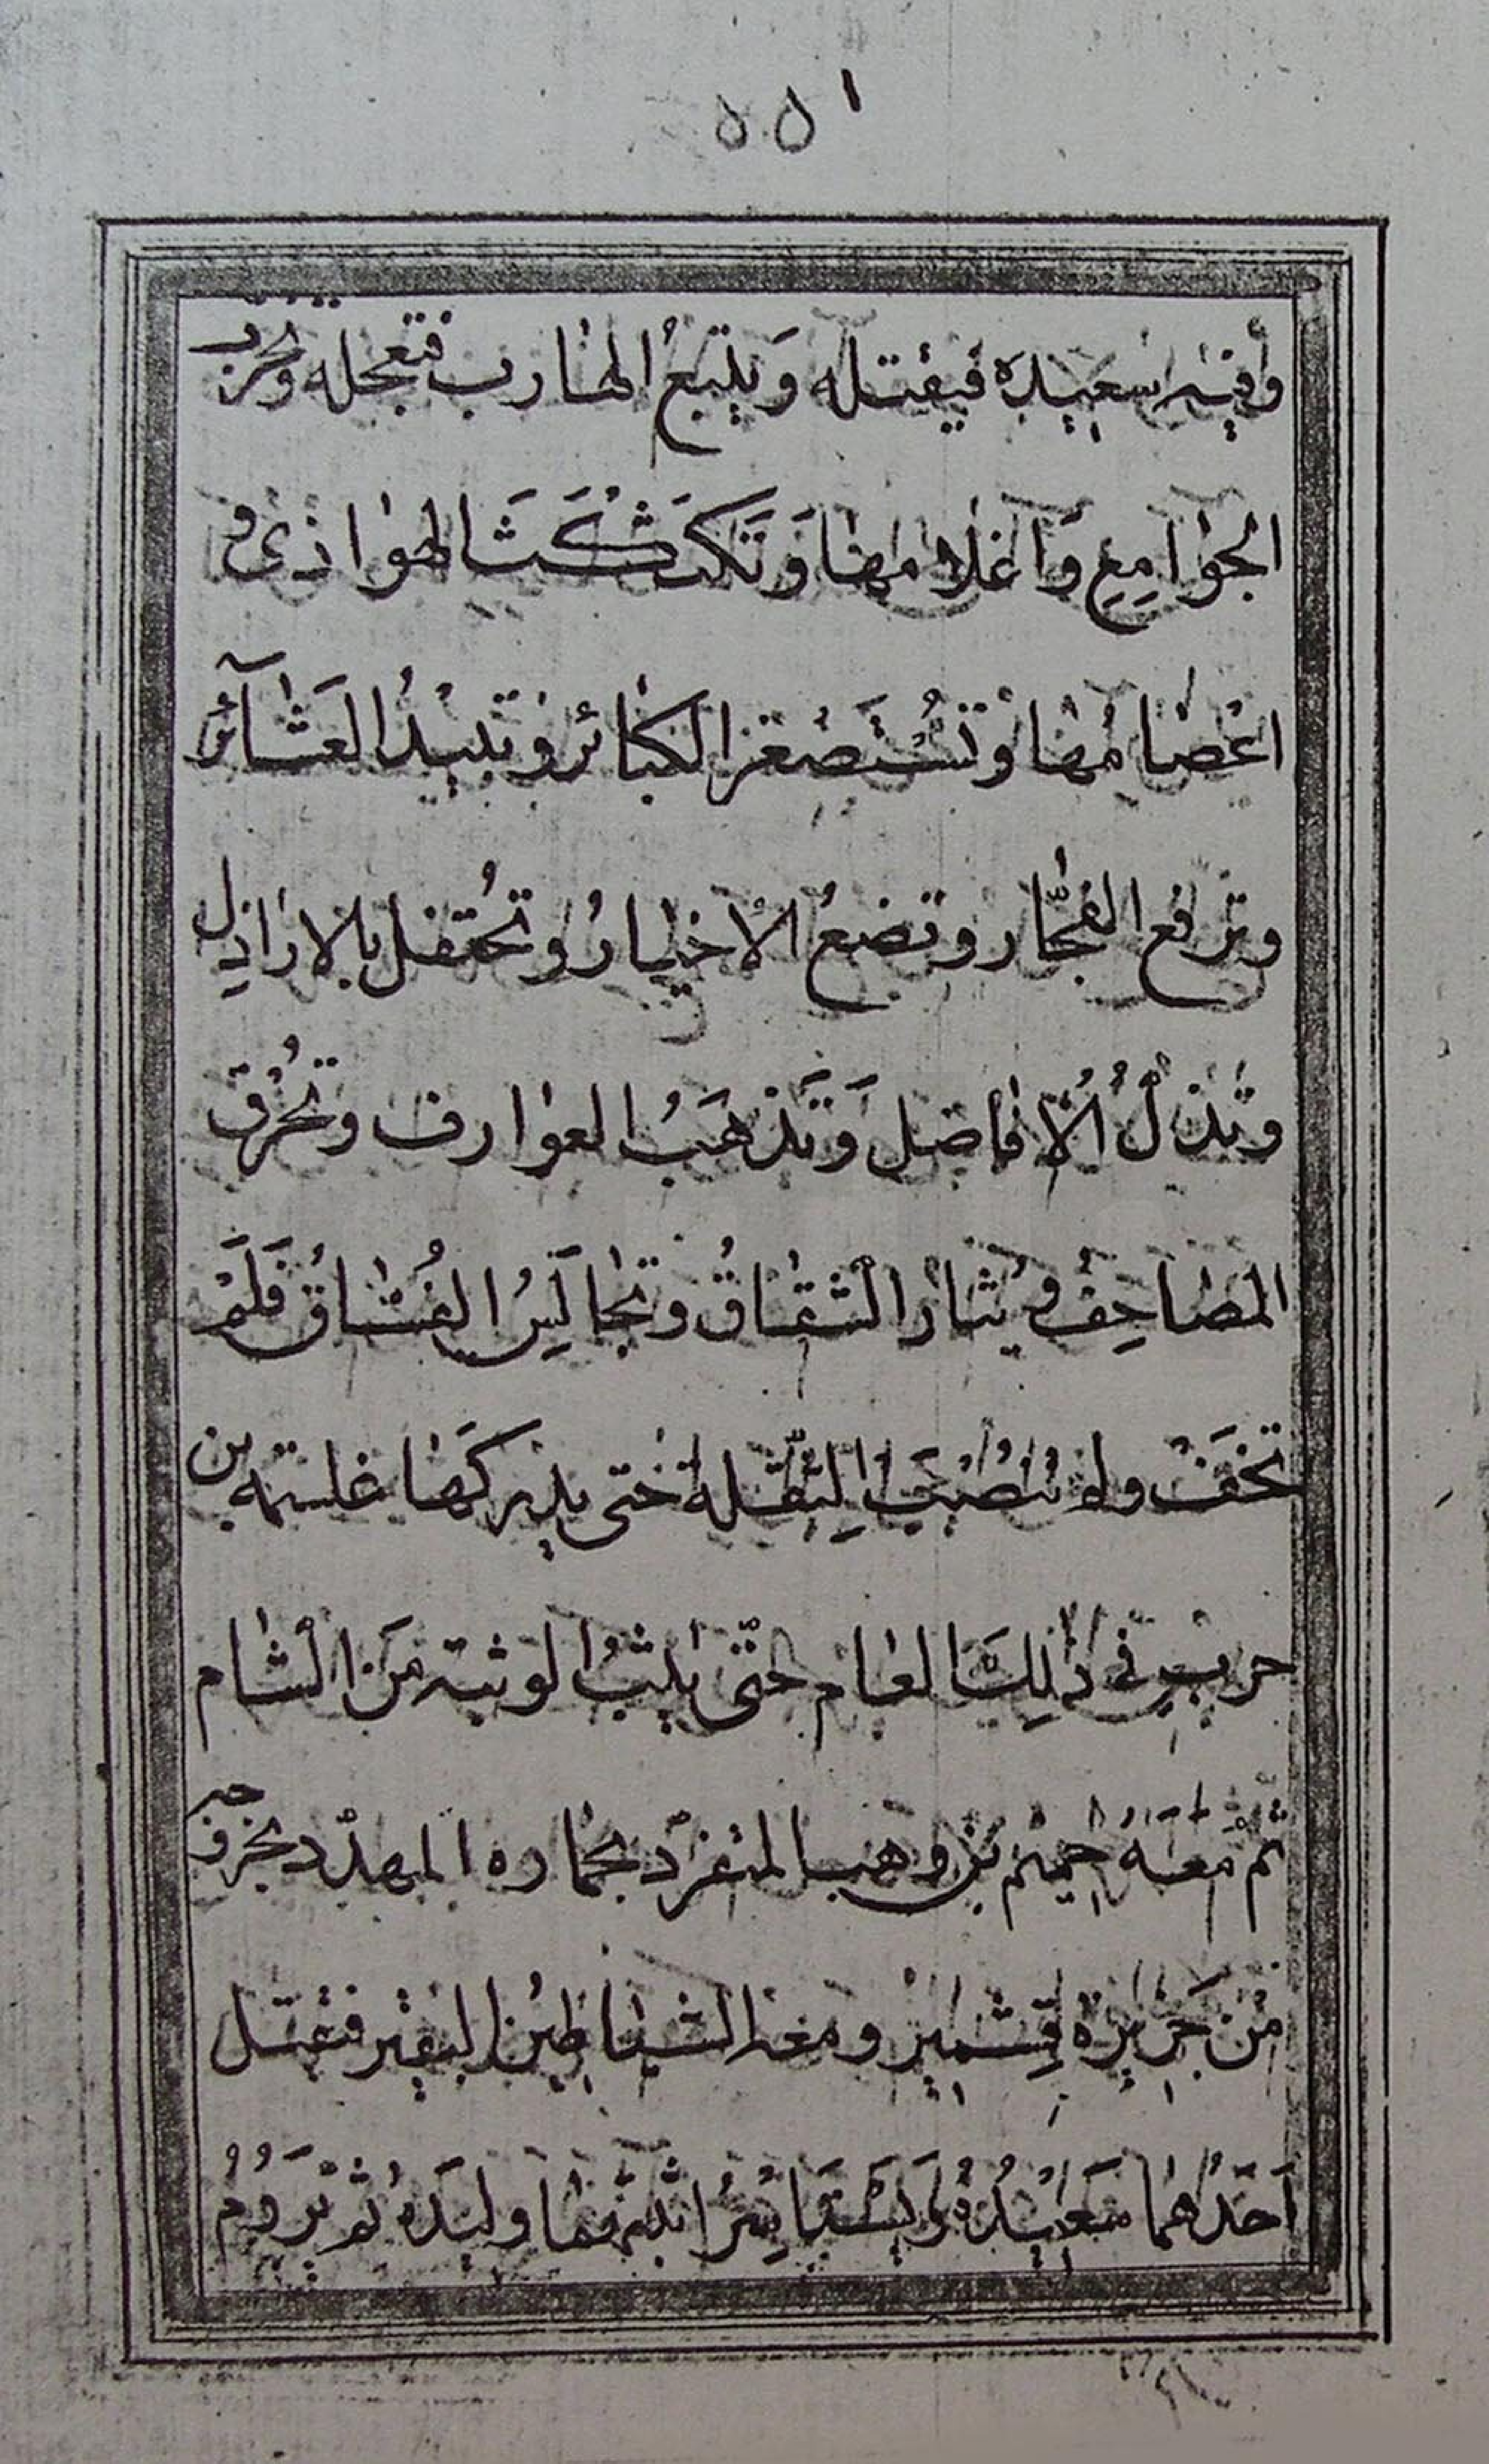 ١٥٥
وأفيه سعيده فيقتله ويتبع الهارب فتعجله وتخرب
الجوامع وأغلامها وتكشكشا لهواذى و
اعصامها وتستصغر الكبائر وتبيد العشآئر
وترفع الفجّار وتضع الاخيار وتحتفل بالاراذل
وتذل الافاضل وتذهب العوارف وتحرق
المصاحف ويثار الشقاق وتجالس الفساق فلم
تخف ولو تنصب لثقلة حتى يدركها غلتمه بن
حرب في ذلك العام حتى يثب الوثبة من الشام
ثم معه جهينم بن وهب المتفرد بحماره المهدد بخروجه
من جزيرة قشمير ومعه الشياطين البقير فيقتل
احدهما سعيده ويستاسر اثنتهما وليده ثم تردم